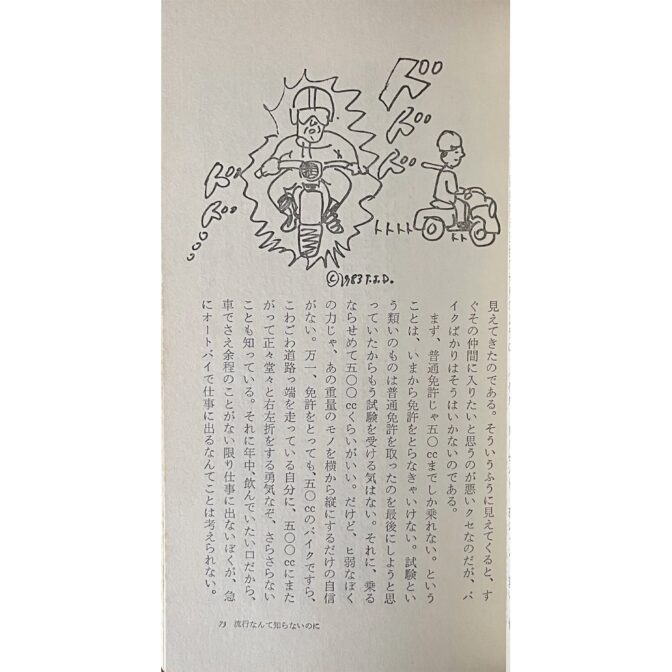 ドド
ド
ド
ド
ド
トトトト
トト
©1983 T.J.D.
見えてきたのである。そういうふうに見えてくると、す
ぐその仲間に入りたいと思うのが悪いクセなのだが、バ
イクばかりはそうはいかないのである。
まず、普通免許じゃ五〇ccまでしか乗れない。という
ことは、いまから免許をとらなきゃいけない。試験とい
う類いのものは普通免許を取ったのを最後にしようと思
っていたからもう試験を受ける気はない。それに、乗る
ならせめて五〇〇ccくらいがいい。だけど、ヒ弱なぼく
の力じゃ、あの重量のモノを横から縦にするだけの自信
がない。万一、免許をとっても、五〇ccのバイクですら、
こわごわ道路っ端を走っている自分に、五〇〇ccにまた
がって正々堂々と右左折をする勇気なぞ、さらさらない
ことも知っている。それに年中、飲んでいたい口だから、
車でさえ余程のことがない限り仕事に出ないぼくが、急
にオートバイで仕事に出るなんてことは考えられない。
79 流行なんて知らないのに